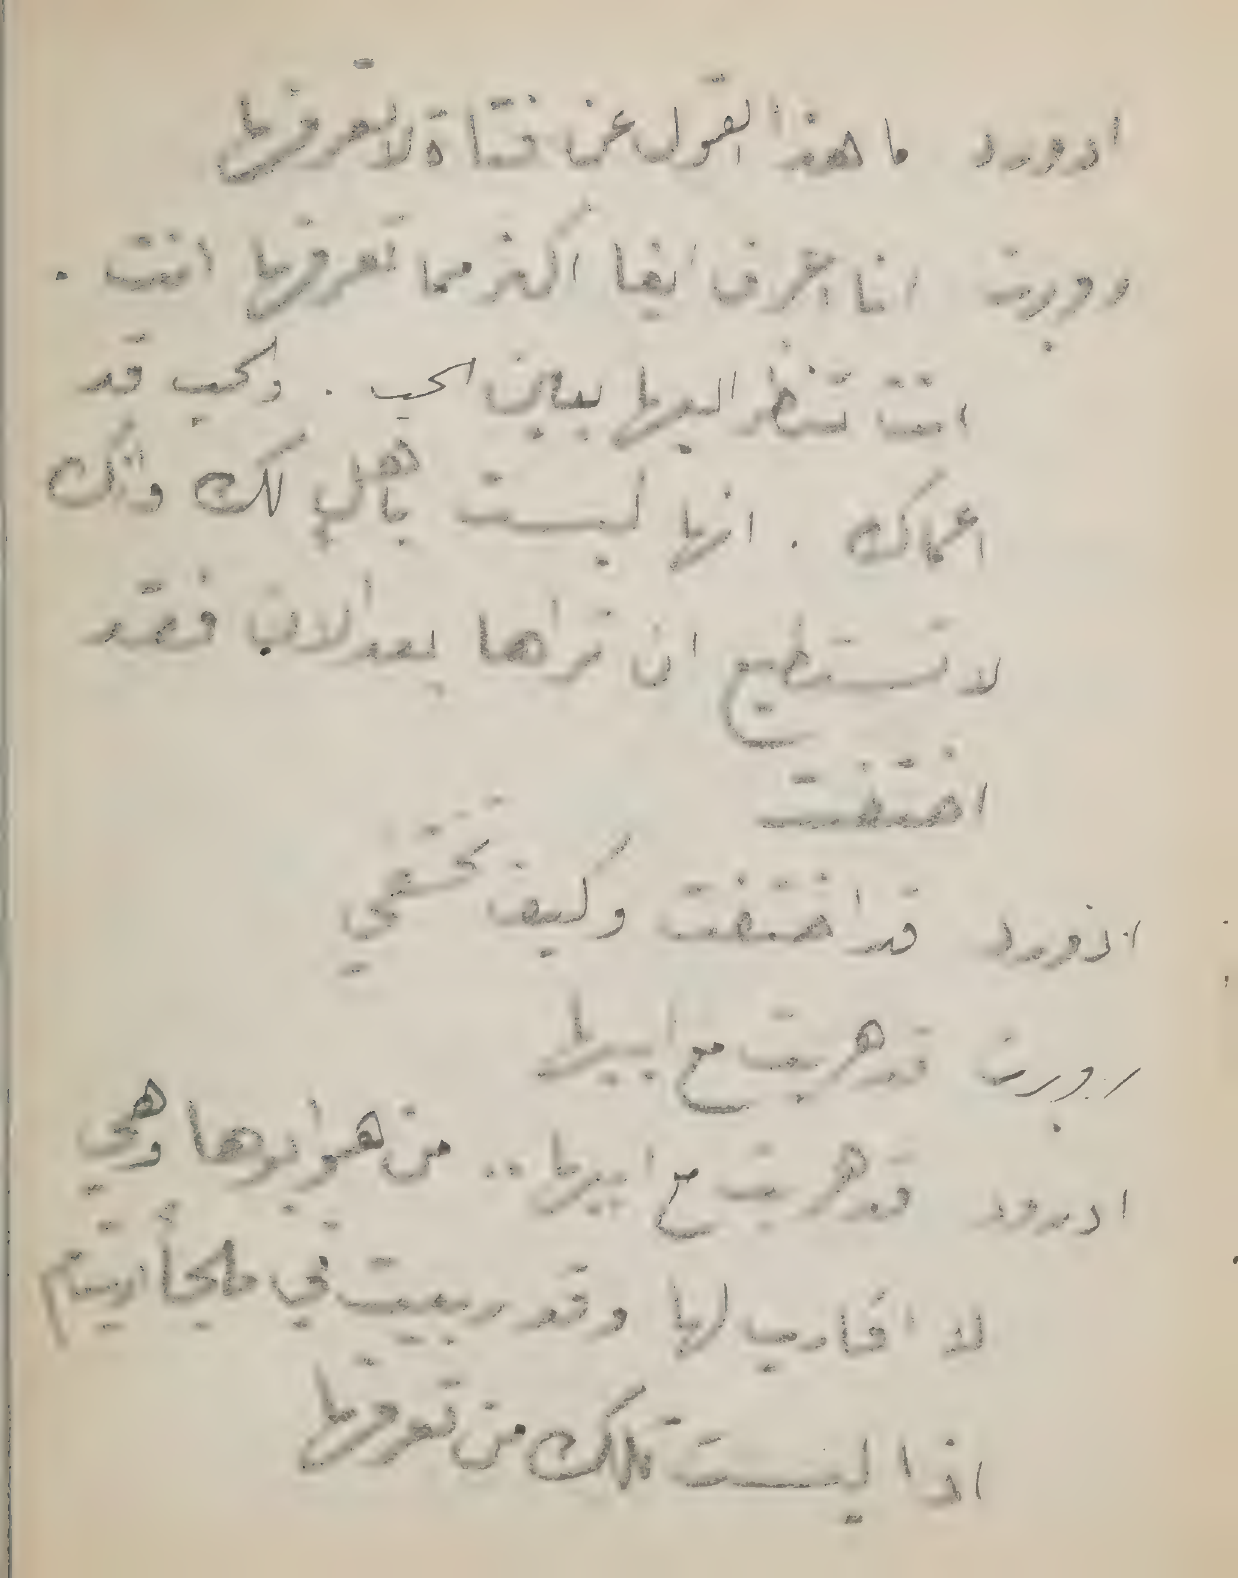 ادورد ما هذا القول عن فتاة لا تعرفها
روبرت انا اعرف ايفا اكثر مما تعرفها انت .
انت تنظر اليها بعين الحب . وكيب قد
اعماك . انها ليست بأهلٍ لك وانك
لا تستطيع ان تراها بعد الان فقد
اختفت
ادورد قد اختفت وكيف تختفي
روبرت قد هربت مع ابيها
ادورد قد هربت مع ابيها .. من هو ابوها وهي
لا اقارب لها وقد ربيت في ملجأ
اذا ليست تلك من تعرفها